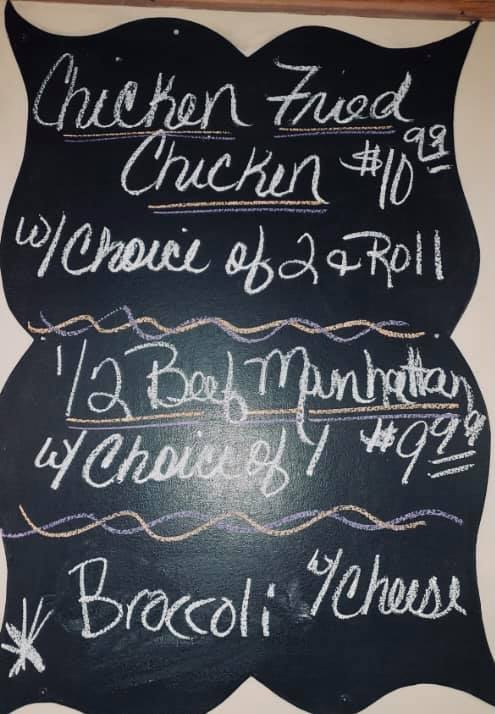 Chicken Fried
Chicken $10.99
w/ Choice of 2 & Roll
1/2 Beef Manhattan
w/ Choice of 1 $9.99
* Broccoli w/ Cheese